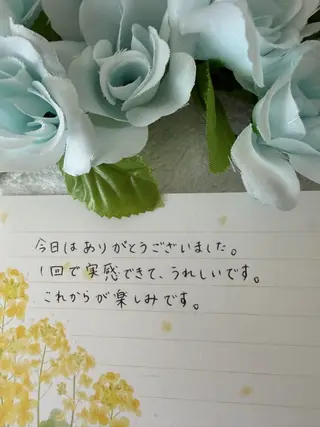 今日はありがとうございました。
1回で実感できて、うれしいです。
これからが楽しみです。